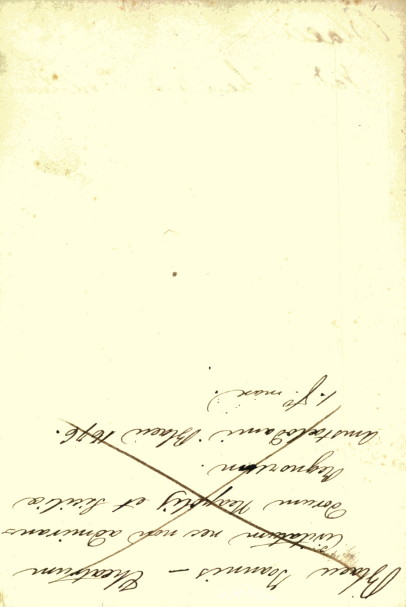 Blaeu Joannis – Theatrum
Civitatum nec non admiran-
dorum Neapolis et Siciliæ
Regnorum.
Amstelodami Blaeu 1676.
1. f.° max.